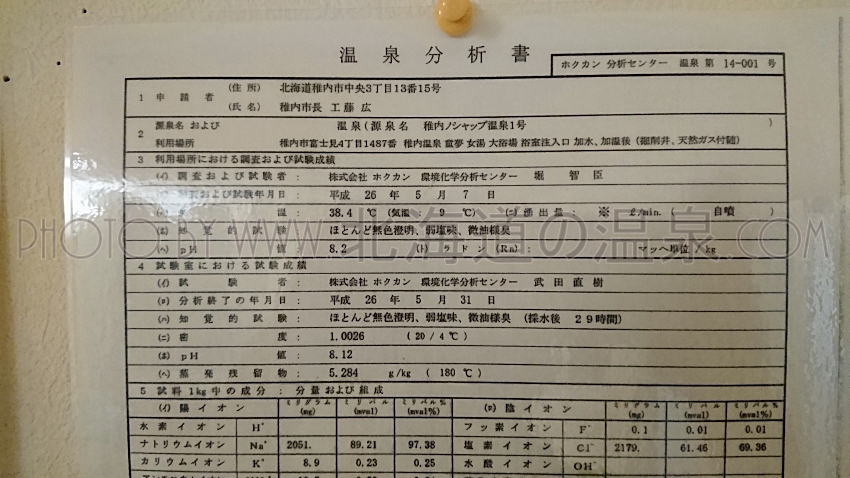 温泉分析書
ホクカン 分析センター 温泉 第 14-001 号
1 申請者 (住所) 北海道稚内市中央3丁目13番15号
(氏名) 稚内市長 工藤 広
2 源泉名 および 温泉 (源泉名 稚内ノシャップ温泉1号 )
利用場所 稚内市富士見4丁目1487番 稚内温泉 童夢 女湯 大浴場 浴室注入口 加水、加温後 (掘削井、天然ガス付随)
3 利用場所における調査および試験成績
(イ) 調査および試験者: 株式会社 ホクカン 環境化学分析センター 堀 智臣
(ロ) 調査および試験年月日: 平成 26 年 5 月 7 日
温: 38.4 ℃ (気温: 9 ℃) (ニ) 湧出量: ※ ℓ/min. ( 自噴 )
(ホ) 知覚的試験 ほとんど無色澄明、弱塩味、微油様臭
(ヘ) pH 値 8.2 (ト) ラドン (Rn): マッヘ単位/kg
4 試験室における試験成績
(イ) 試験者: 株式会社 ホクカン 環境化学分析センター 武田直樹
(ロ) 分析終了の年月日: 平成 26 年 5 月 31 日
(ハ) 知覚的試験: ほとんど無色澄明、弱塩味、微油様臭 (採水後 29時間)
(ニ) 密度: 1.0026 (20/4℃)
(ホ) pH 値: 8.12
(ヘ) 蒸発残留物: 5.284 g/kg (180℃)
5 試料1kg中の成分: 分量および組成
(イ) 陽イオン ミリグラム (mg) ミリバル (mval) ミリバル% (mval%) (ロ) 陰イオン ミリグラム (mg) ミリバル (mval) ミリバル% (mval%)
水素イオン H⁺ フッ素イオン F⁻ 0.1 0.01 0.01
ナトリウムイオン Na⁺ 2051. 89.21 97.38 塩素イオン Cl⁻ 2179. 61.46 69.36
カリウムイオン K⁺ 8.9 0.23 0.25 水酸イオン OH⁻
PHOTO BY WWW.北海道の温泉.COM